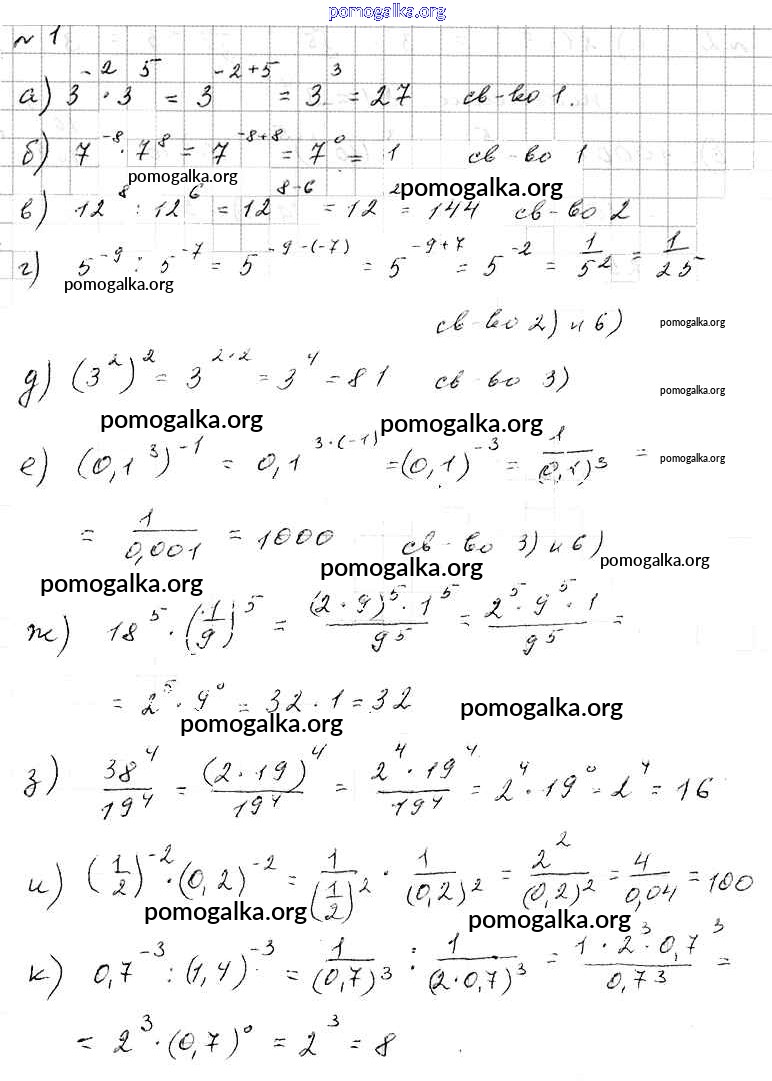 pomogalka.org
№ 1
а) 3⁻² · 3⁵ = 3⁻²⁺⁵ = 3³ = 27 св-во 1.
б) 7⁻⁸ · 7⁸ = 7⁻⁸⁺⁸ = 7⁰ = 1 св-во 1
pomogalka.org pomogalka.org
в) 12⁸ : 12⁶ = 12⁸⁻⁶ = 12² = 144 св-во 2
г) 5⁻⁹ : 5⁻⁷ = 5⁻⁹⁻⁽⁻⁷⁾ = 5⁻⁹⁺⁷ = 5⁻² = 1/5² = 1/25
pomogalka.org
св-во 2) и 6) pomogalka.org
д) (3²)² = 3²·² = 3⁴ = 81 св-во 3) pomogalka.org
pomogalka.org pomogalka.org
е) (0,1³)⁻¹ = 0,1³·⁽⁻¹⁾ = (0,1)⁻³ = 1/(0,1)³ = pomogalka.org
= 1/0,001 = 1000 св-во 3) и 6) pomogalka.org
pomogalka.org pomogalka.org
ж) 18⁵ · (1/9)⁵ = (2·9)⁵·1⁵/9⁵ = 2⁵·9⁵·1/9⁵ =
= 2⁵ · 9⁰ = 32 · 1 = 32 pomogalka.org
pomogalka.org
з) 38⁴/19⁴ = (2·19)⁴/19⁴ = 2⁴·19⁴/19⁴ = 2⁴·19⁰ = 2⁴ = 16
и) (1/2)⁻² · (0,2)⁻² = 1/(1/2)² · 1/(0,2)² = 2²/(0,2)² = 4/0,04 = 100
pomogalka.org pomogalka.org
к) 0,7⁻³ : (1,4)⁻³ = 1/(0,7)³ : 1/(2·0,7)³ = 1·2³·0,7³/0,7³ =
= 2³ · (0,7)⁰ = 2³ = 8